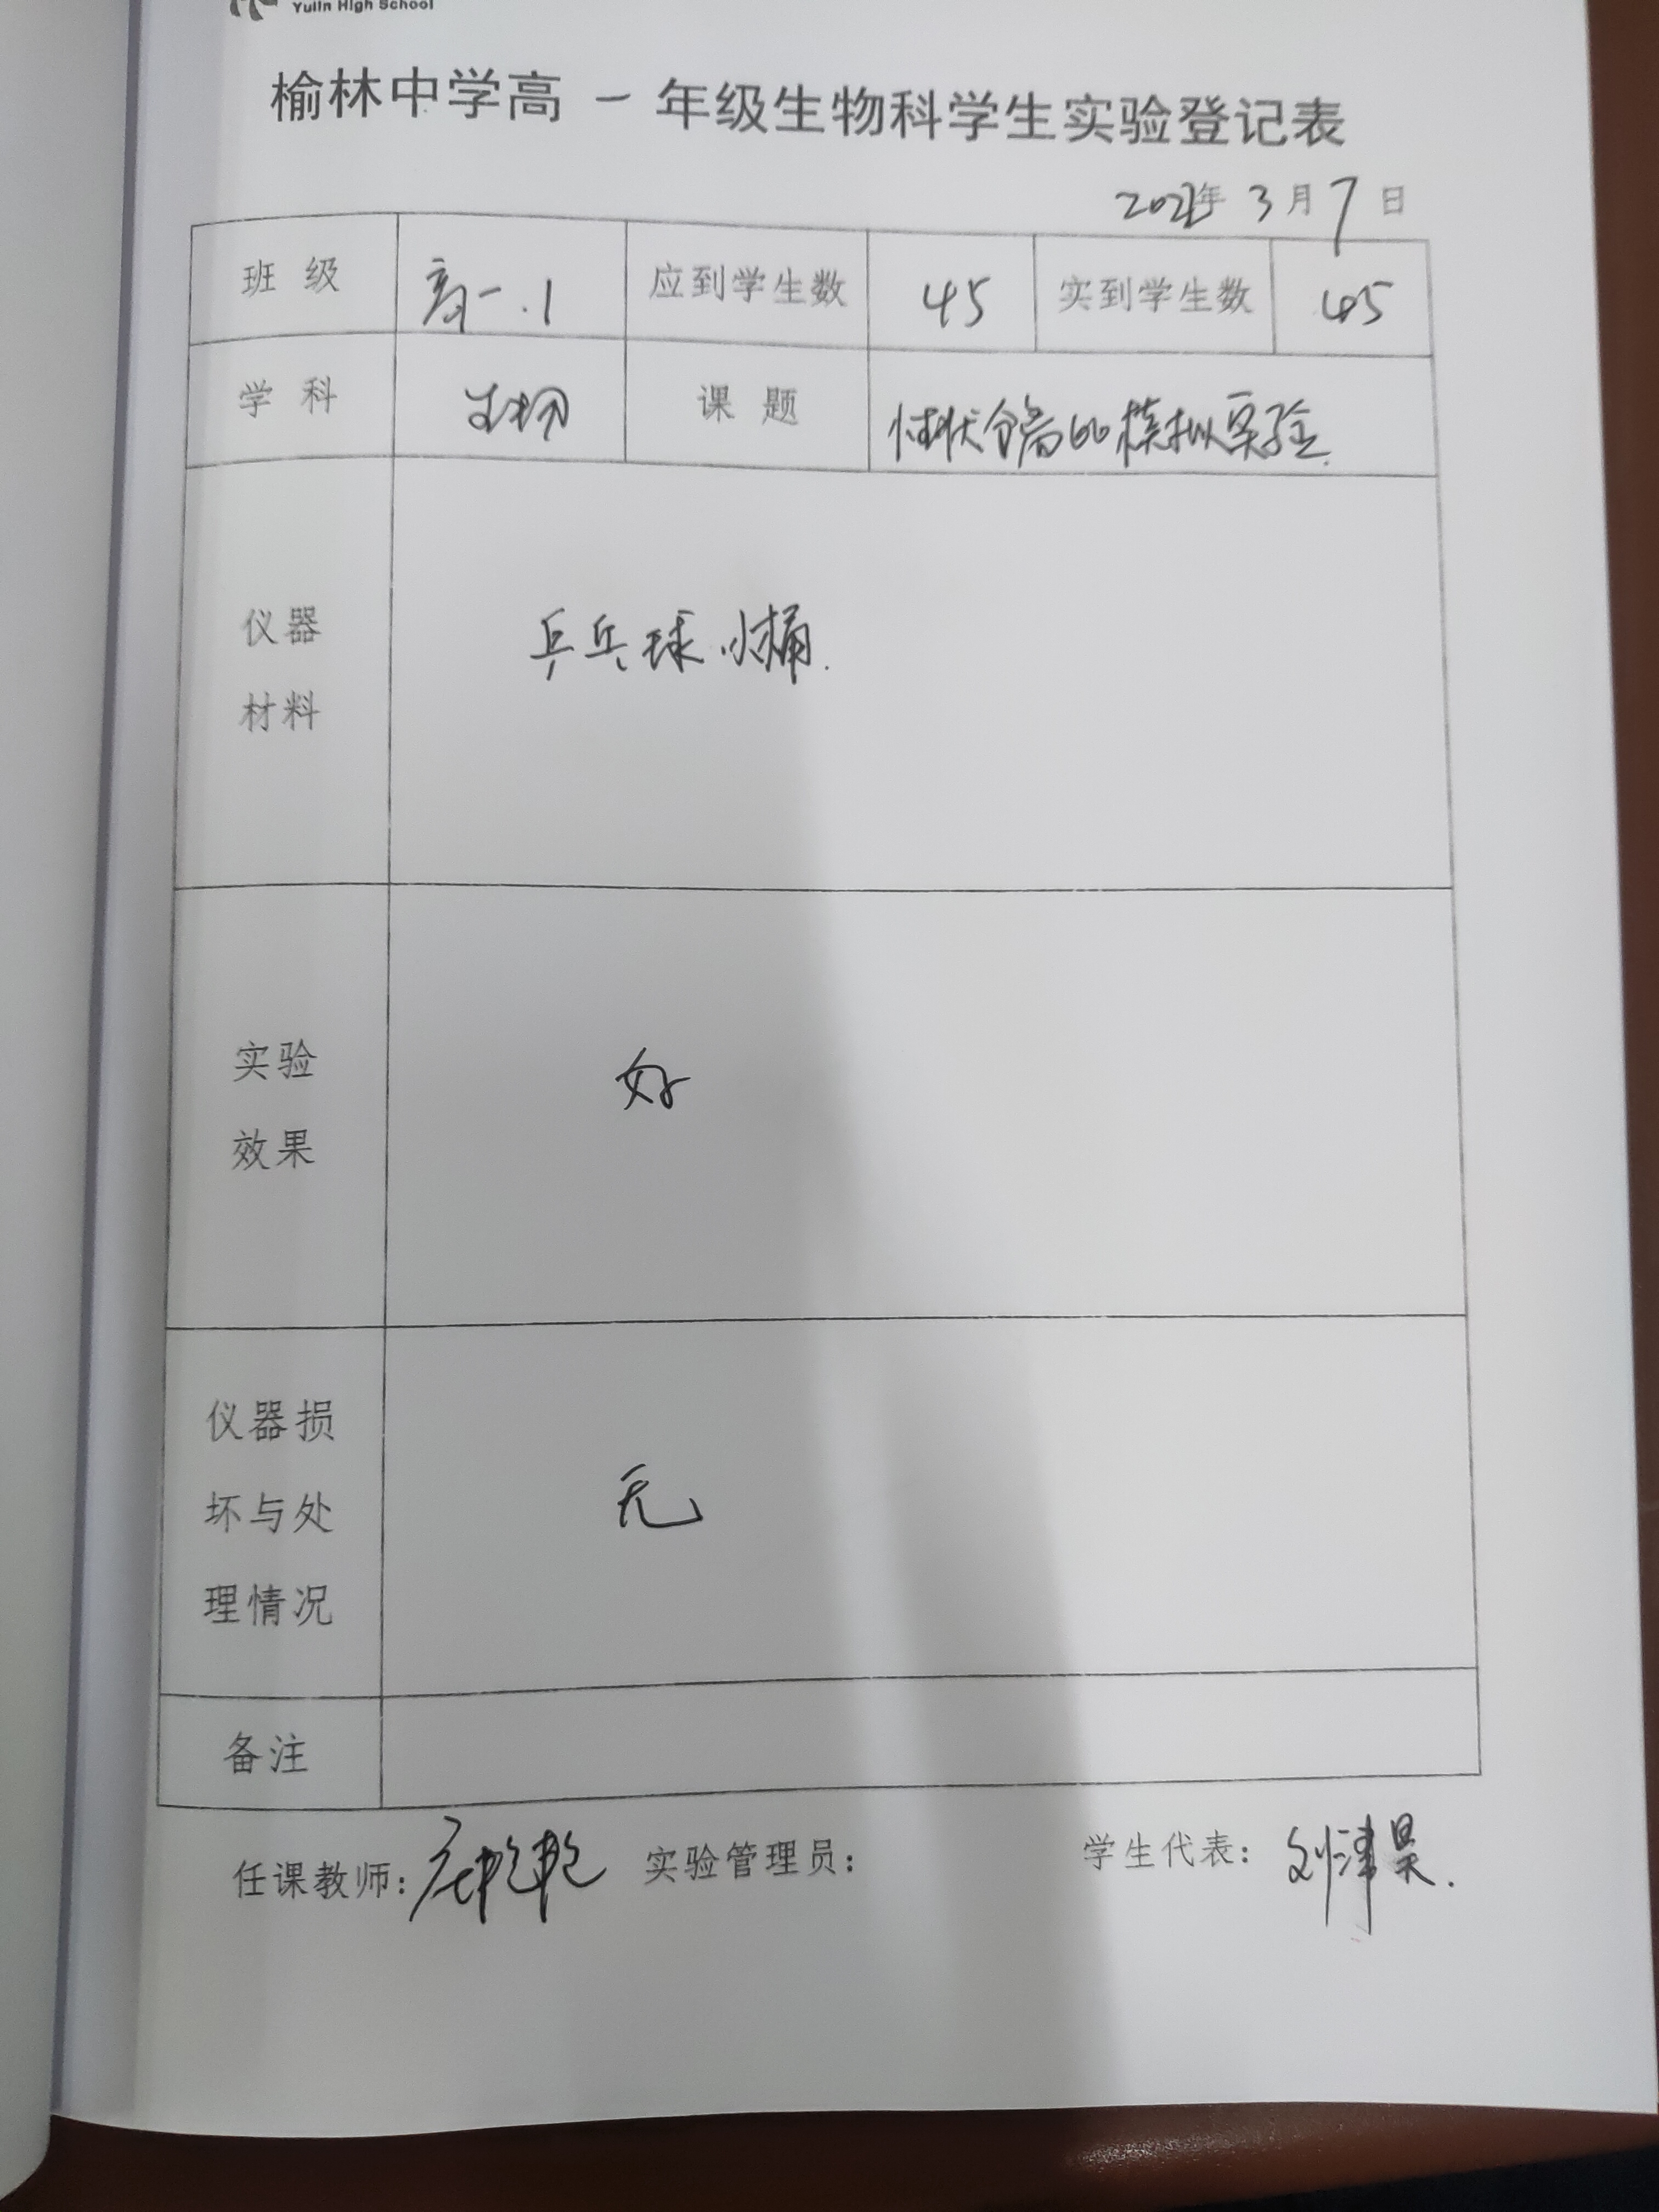 Yulin High School
榆林中学高 一 年级生物科学生实验登记表
年 3 月 7 日
班 级 高一.1 应到学生数 45 实到学生数 45
学 科 生物 课 题 性状分离的模拟实验
仪器
材料
乒乓球 小桶.
实验
效果
好
仪器损
坏与处
理情况
无
备注
任课教师: 实验管理员: 学生代表: 刘津昊.